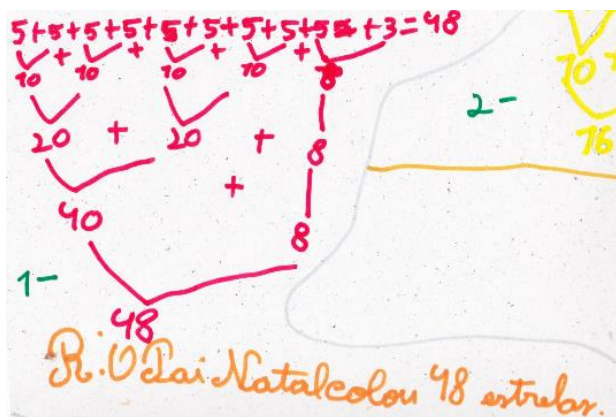 5+5+5+5+5+5+5+5+5+3=48
10 + 10 + 10 + 10 + 8
20 + 20 + 8
40 + 8
48
1-
R: O Pai Natal colou 48 estrelas.
2-
10
16